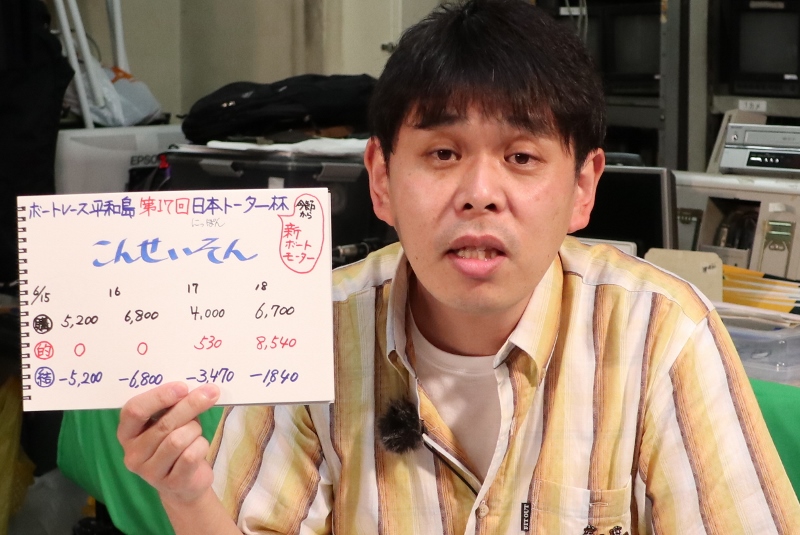 ボートレース平和島 第17回 日本トーター杯
にっぽん
今節から
新
ボート
モーター
こんせいそん
6/15 16 17 18
購 5,200 6,800 4,000 6,700
的 0 0 530 8,540
結 -5,200 -6,800 -3,470 -1,840
EPSON
FIT OUT